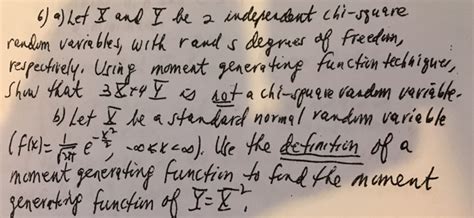 6) a) Let X and Y be 2 independent chi-square
random variables, with r and s degrees of freedom,
respectively. Using moment generating function techniques,
show that 3X+4Y is not a chi-square random variable.
b) Let X be a standard normal random variable
(f(x) = 1/√2π e^(-x²/2), -∞<x<∞). Use the definition of a
moment generating function to find the moment
generating function of Y=X².